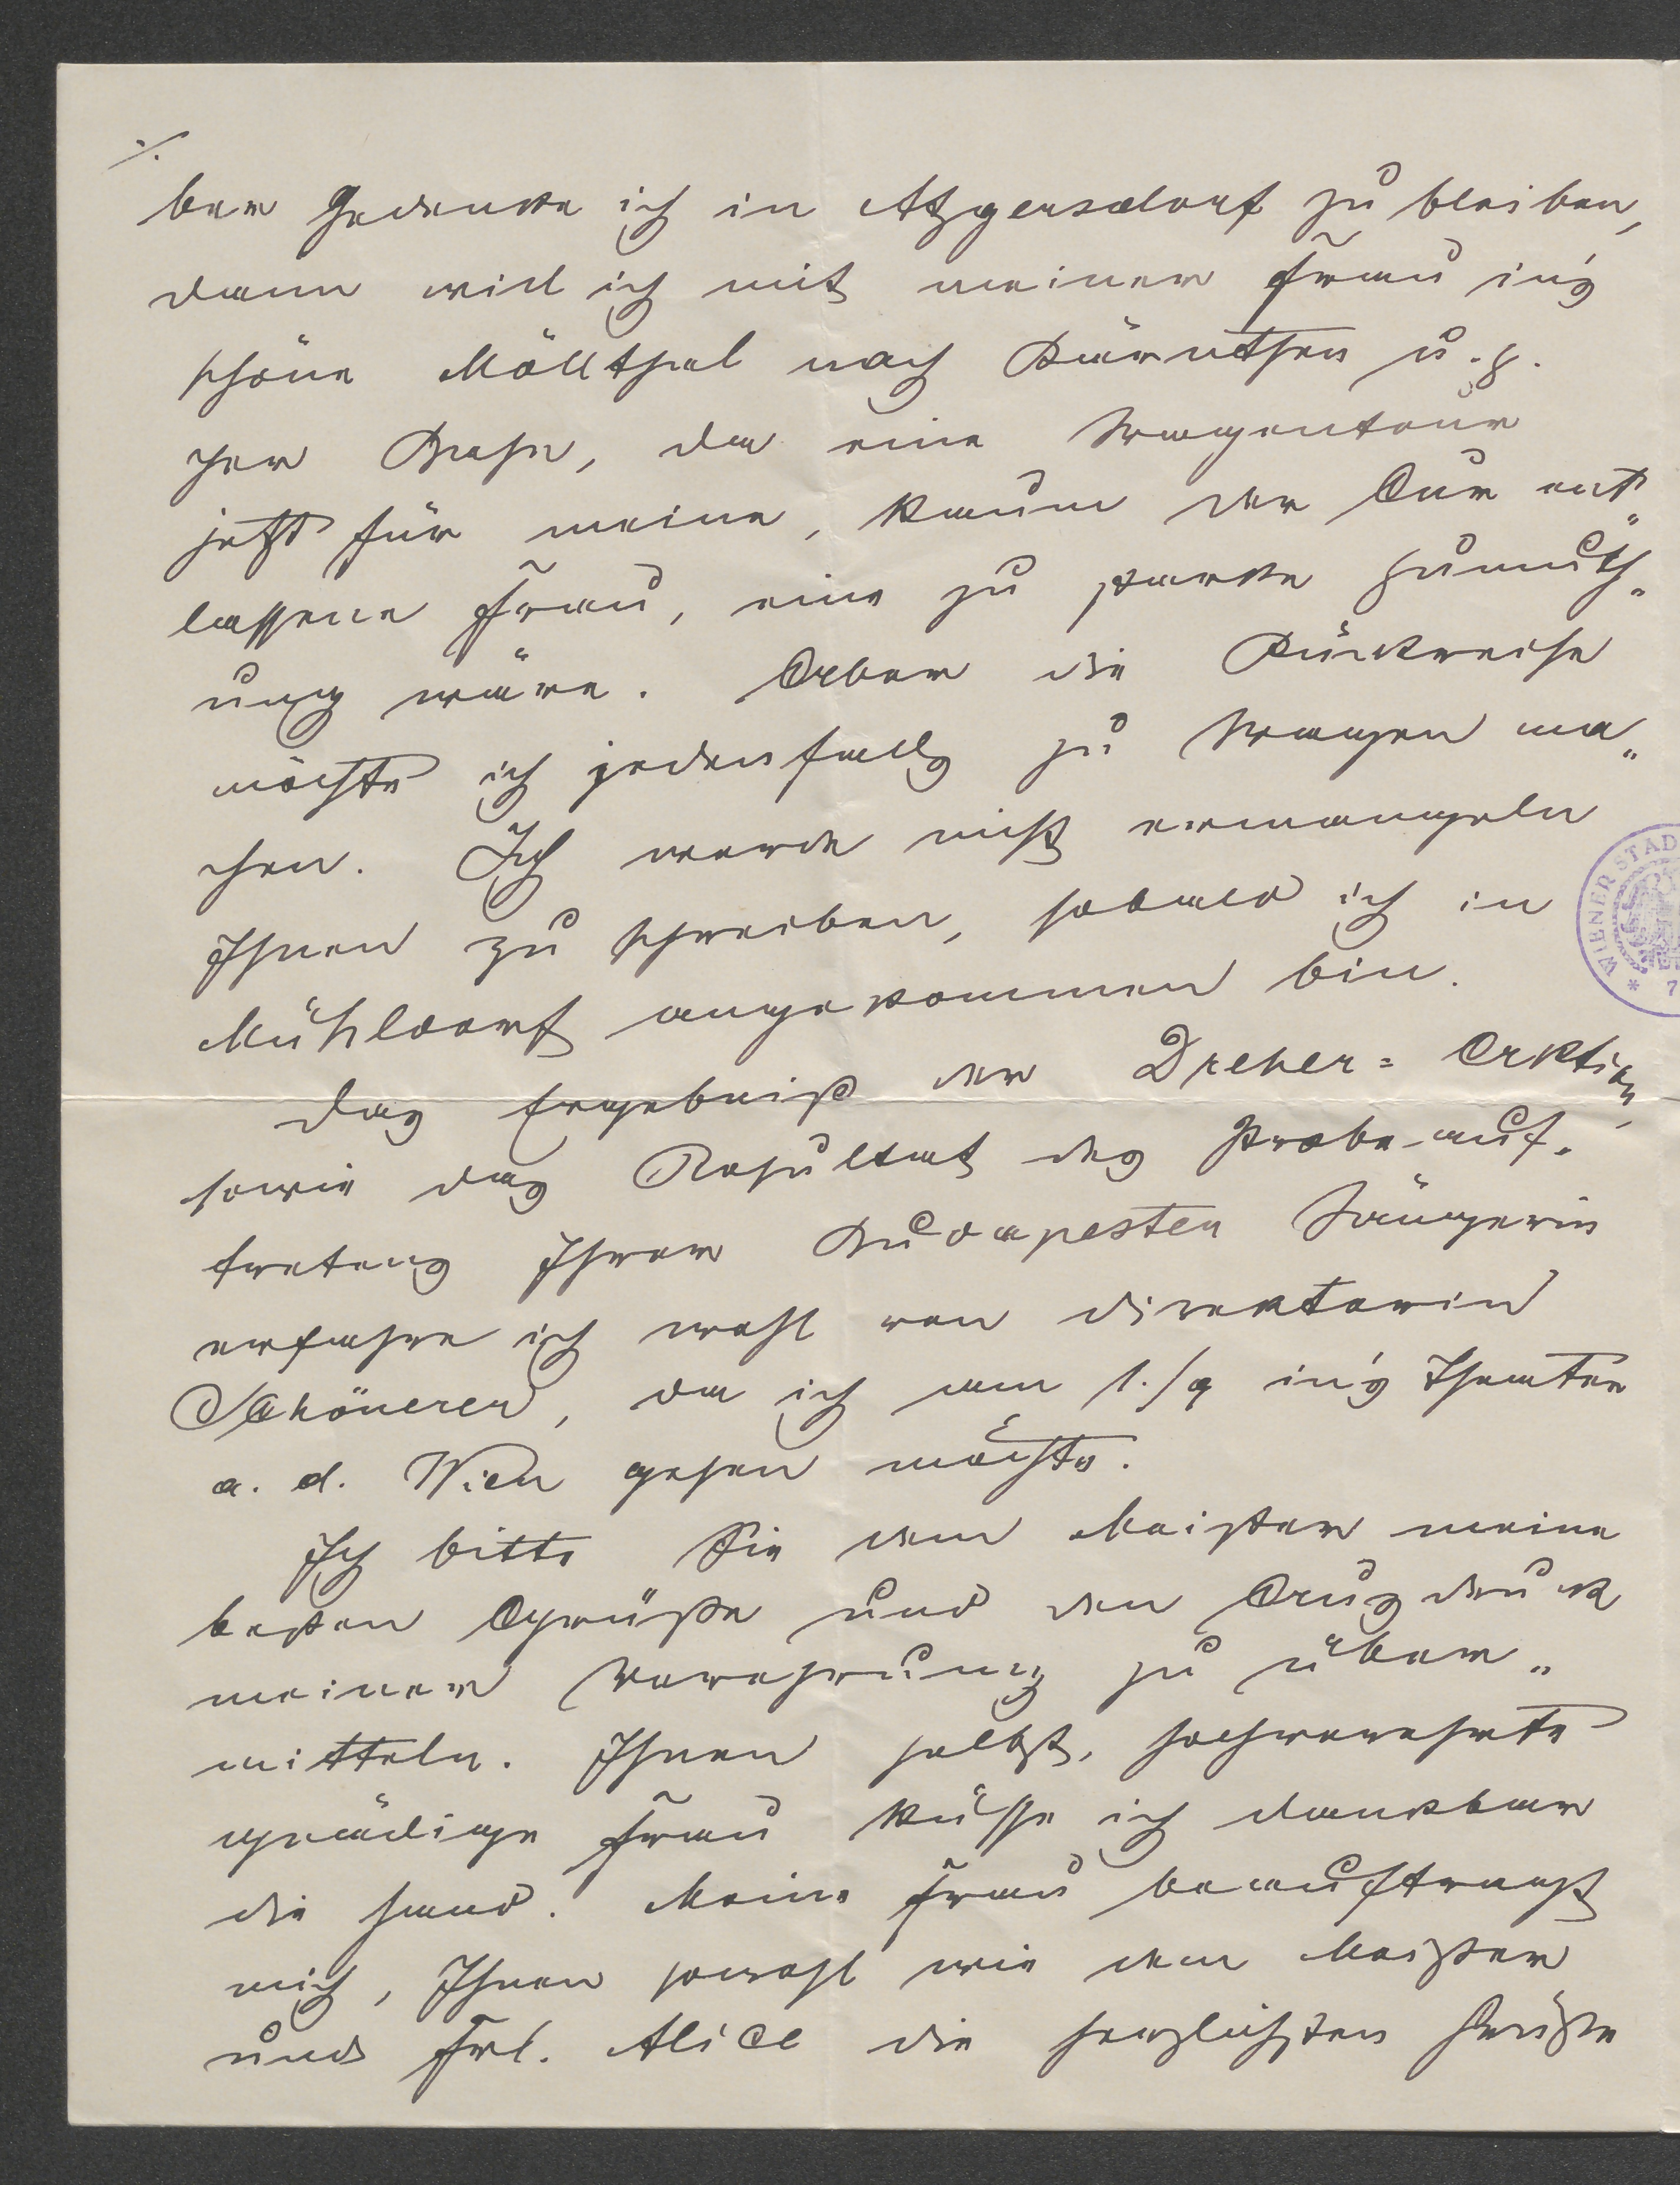 ./.
ber gedenke ich in Atzgersdorf zu bleiben,
dann will ich mit meiner Frau in's
schöne Möllthal nach Kärnthen u. z.
per Bahn, da eine Wagentour
jetzt für meine, kaum der Cur ent„
lassene Frau, eine zu starke Zumuth„
ung wäre. Aber die Rückreise
möchte ich jedenfalls zu Wagen ma„
chen. Ich werde nicht ermangeln
Ihnen zu schreiben, sobald ich in
Mühldorf angekommen bin.
Das Ergebniß der Dreher= Aktion,
sowie das Resultat des Probe-auf„
tretens Ihrer Budapester Sängerin
erfahre ich wohl von Direktorin
Schönerer, da ich am 1./9 in's Theater
a. d. Wien gehen möchte.
Ich bitte Sie dem Meister meine
besten Grüße und den Ausdruck
meiner Verehrung zu über„
mitteln. Ihnen selbst, hochverehrte
gnädige Frau küsse ich dankbar
die Hand. Meine Frau beauftragt
mich, Ihnen sowohl wie dem Meister
und Frl. Alice die herzlichsten Grüße
WIENER STAD
* 7